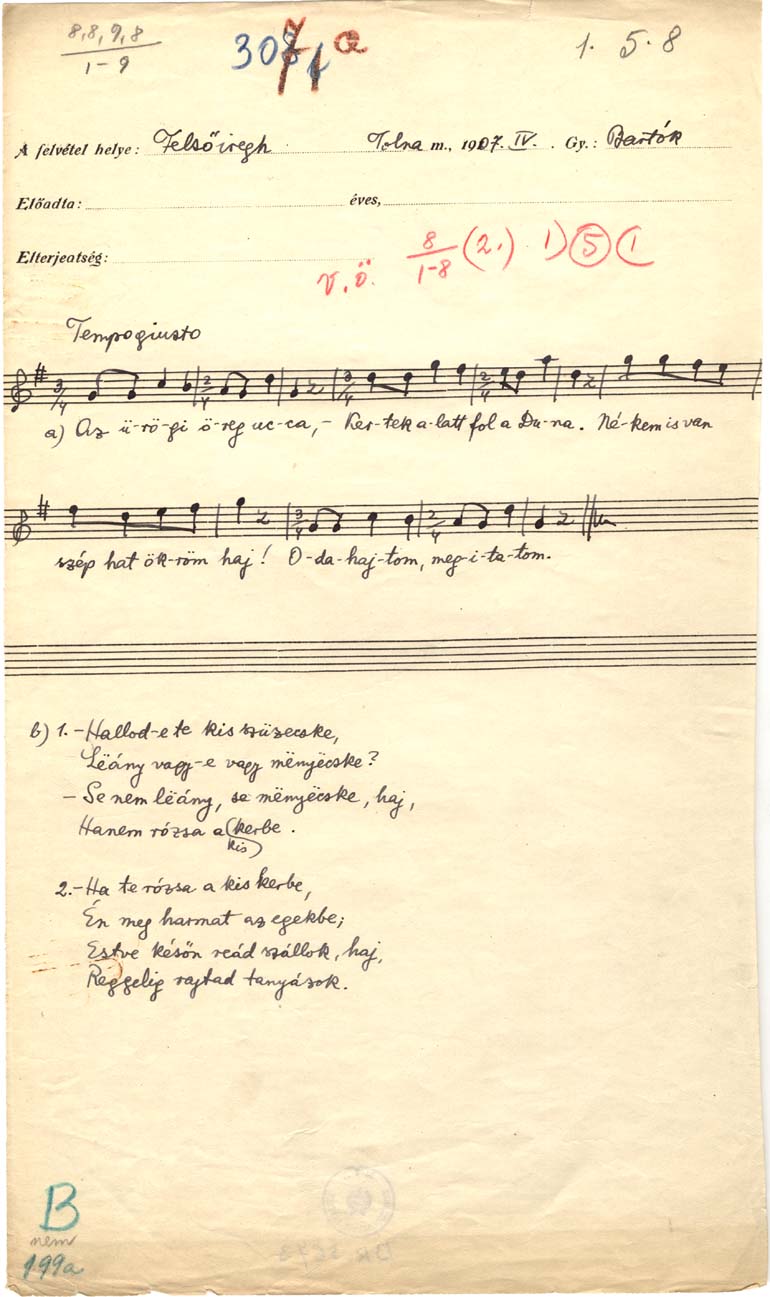 8,8,9,8
1-9
a
1. 5. 8
A felvétel helye: Felsőiregh Tolna m., 1907. IV. Gy.: Bartók
Előadta: éves,
Elterjeatség:
V.ö. 8/1-8 (2.) 1) 5 (1
Tempo giusto
3/4 2/4 3/4 2/4
a) Az ü-rö-gi ö-reg uc-ca, - Ker-tek a-latt fol a Du-na. Né-kem is van
3/4 2/4
szép hat ök-röm haj! O-da-haj-tom, meg-i-ta-tom.
b) 1. - Hallod-e te kis szüzecske,
Lëány vagy-e vagy mënyëcske?
- Se nem lëány, se mënyëcske, haj,
Hanem rózsa a (kerbe.
kis)
2. - Ha te rózsa a kis kerbe,
Én meg harmat az egekbe;
Estve későn reád szállok, haj,
Reggelig rajtad tanyázok.
B
nem
199a